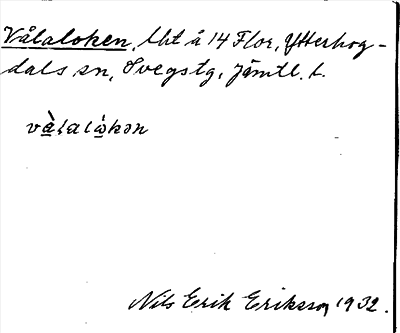 Vålaloken, lht å 14 Flor, Ytterhog-
dals sn, Svegs tg, Jämtl. l.
Nils Erik Eriksson 1932.